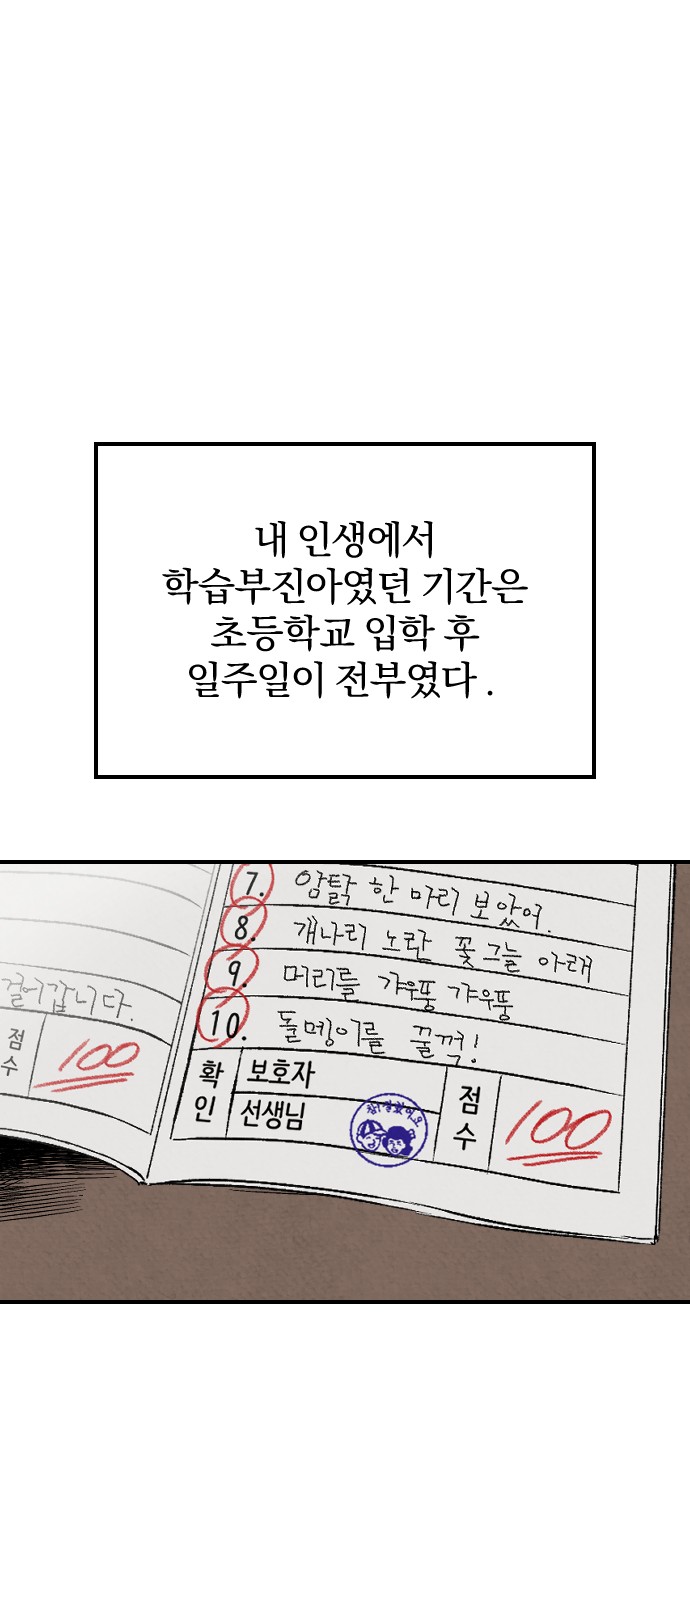 내 인생에서
학습부진아였던 기간은
초등학교 입학 후
일주일이 전부였다.
걸어갑니다.
점수
100
7. 암탉 한 마리 보았어.
8. 개나리 노란 꽃그늘 아래
9. 머리를 갸우뚱 갸우뚱
10. 돌멩이를 꿀꺽!
확인
보호자
선생님
참! 잘했어요
점수
100